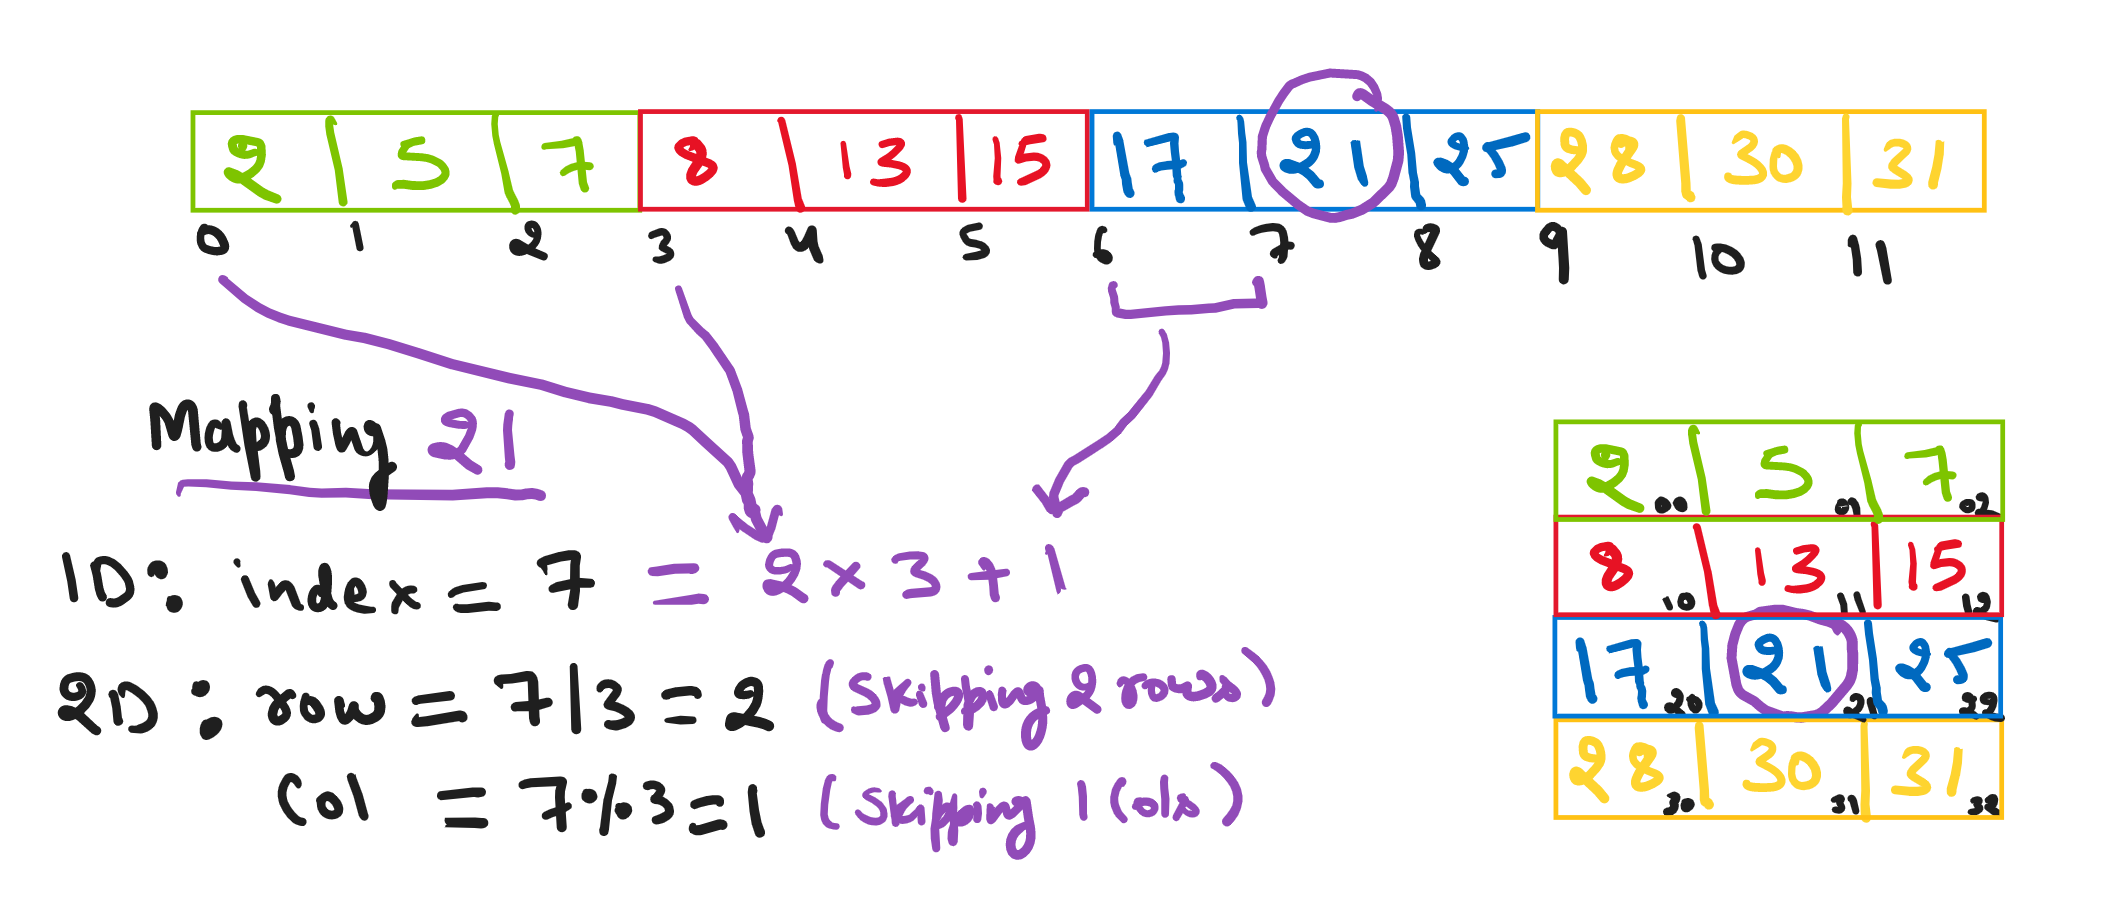 2 5 7 8 13 15 17 21 25 28 30 31
0 1 2 3 4 5 6 7 8 9 10 11
Mapping 21
1D: index = 7 = 2 x 3 + 1
2D: row = 7/3 = 2 (Skipping 2 rows)
Col = 7%3 = 1 (Skipping 1 Cols)
2 5 7
00 01 02
8 13 15
10 11 12
17 21 25
20 21 22
28 30 31
30 31 32